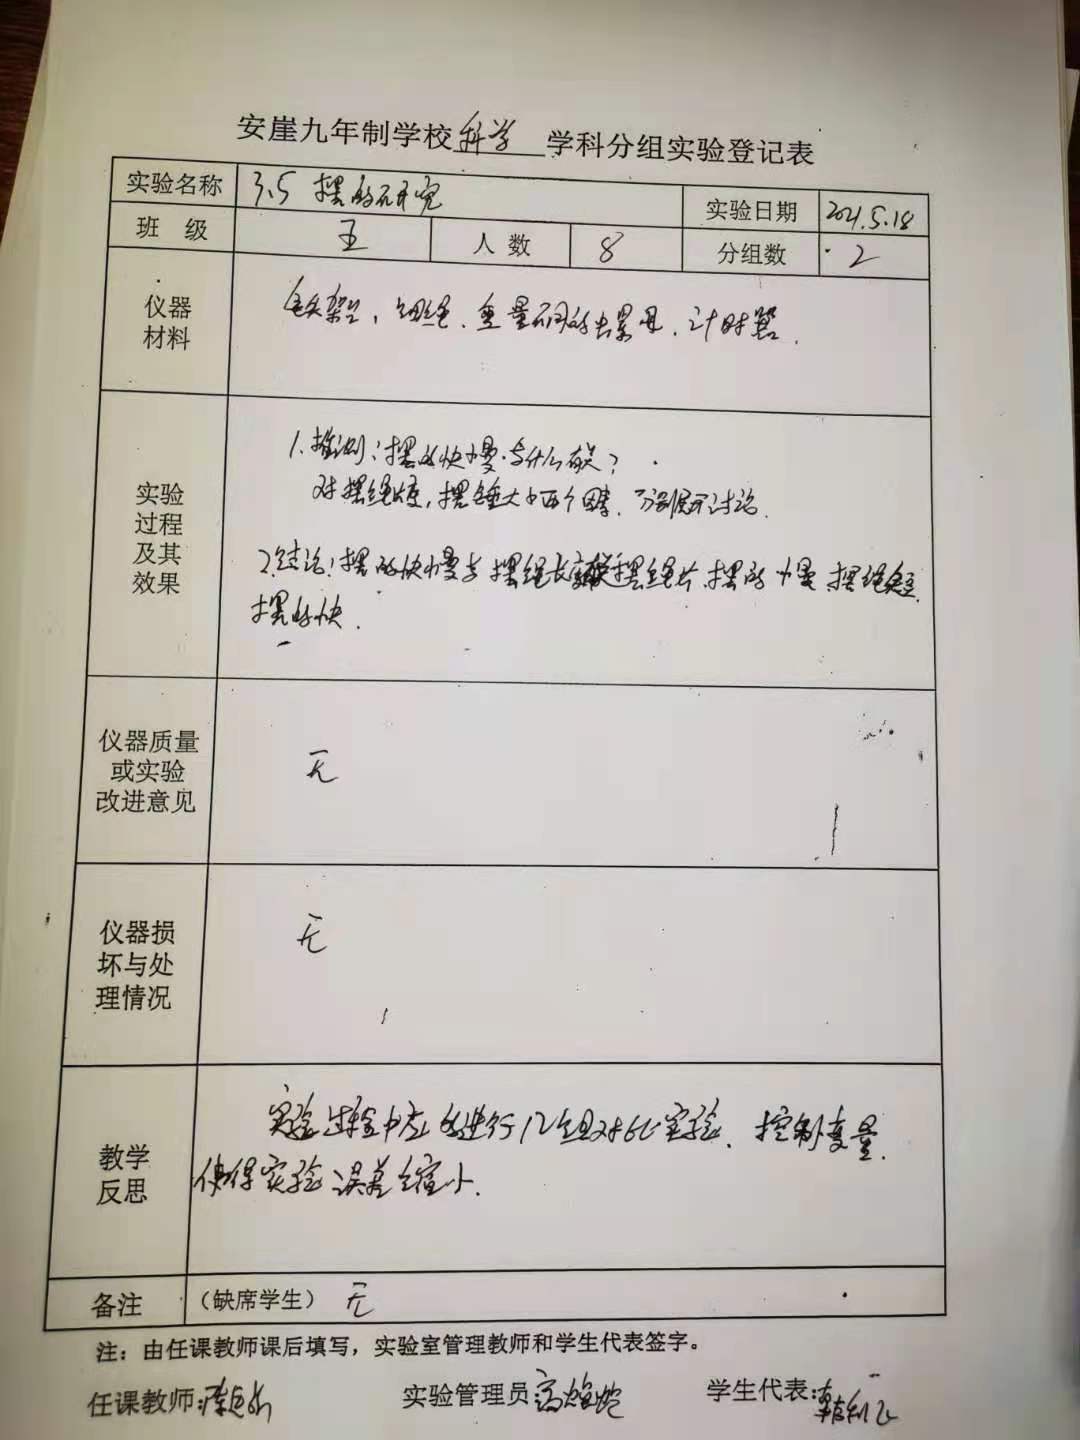 安崖九年制学校科学学科分组实验登记表
实验名称 3.5 摆的研究 实验日期 2021.5.18
班 级 五 人 数 8 分组数 2
仪器
材料
铁架台、细绳、重量不同的去累母、计时器.
实验
过程
及其
效果
1.推测:摆的快慢与什么有关?
对摆绳长度,摆锤大小两个因素,分别展开讨论.
2.结论:摆的快慢与摆绳长度有关摆绳长,摆的慢,摆绳短,
摆的快.
仪器质量
或实验
改进意见
无
仪器损
坏与处
理情况
无
教学
反思
实验过程中应 进行几组对比实验、控制变量,
使得实验误差缩小.
备注 (缺席学生) 无
注:由任课教师课后填写,实验室管理教师和学生代表签字。
任课教师: 实验管理员 学生代表: